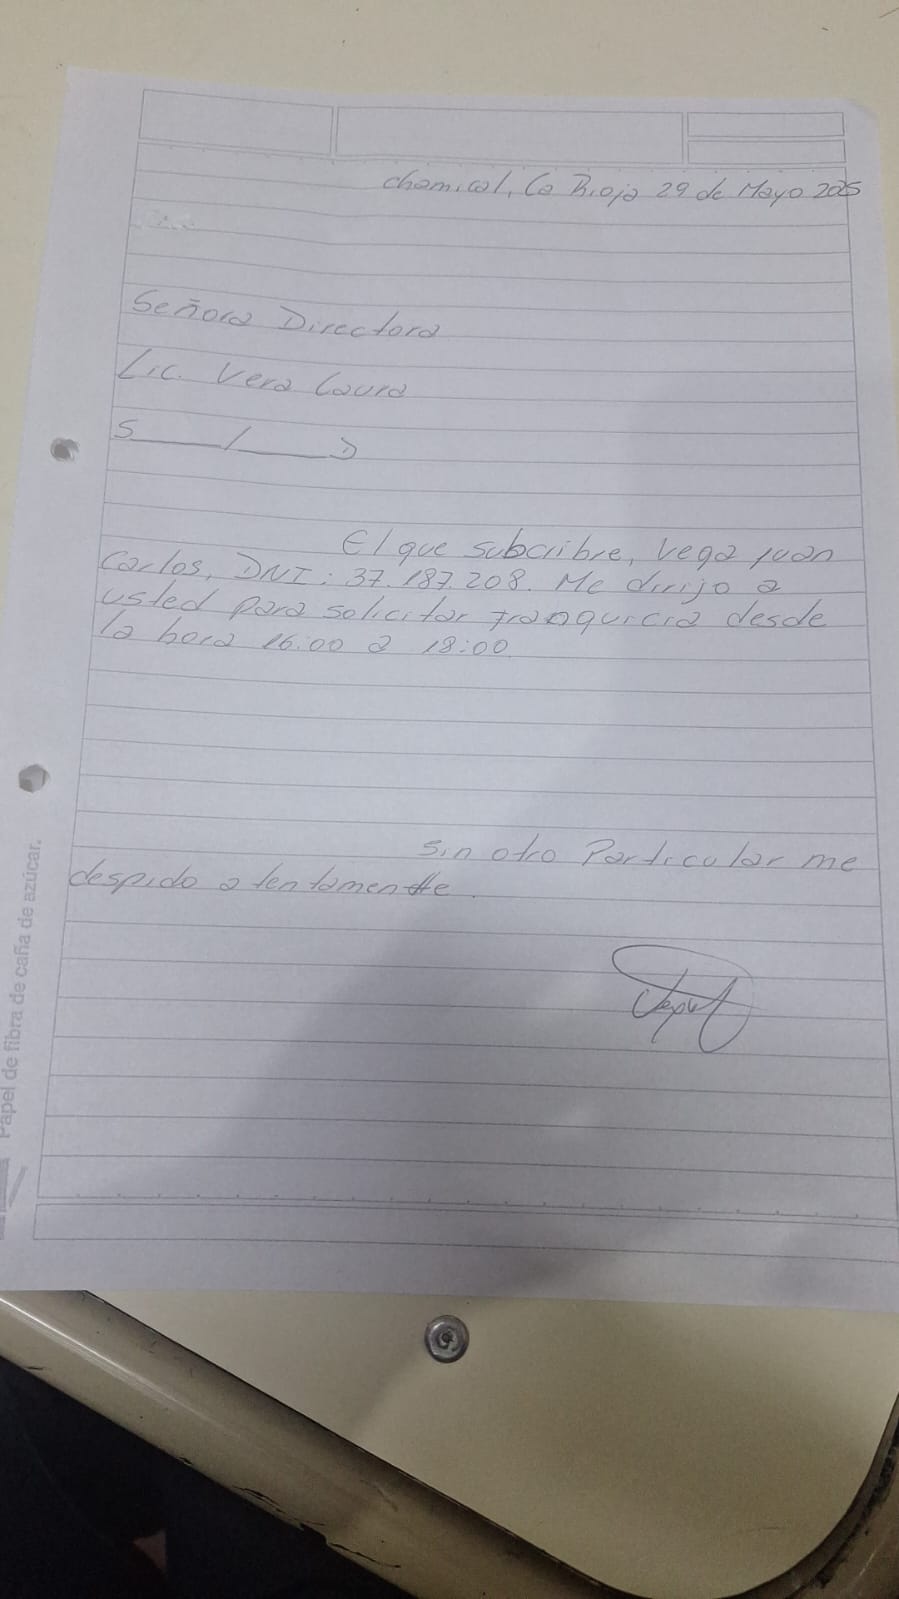 Chamical, La Rioja 29 de Mayo 2025
Señora Directora
Lic. Vera Laura
S____/____D
El que subcribre, Vega Juan
Carlos, DNI: 37.187.208. Me dirijo a
usted para solicitar franquicia desde
la hora 16:00 a 18:00
Sin otro Particular me
despido atentamente
Papel de fibra de caña de azúcar.